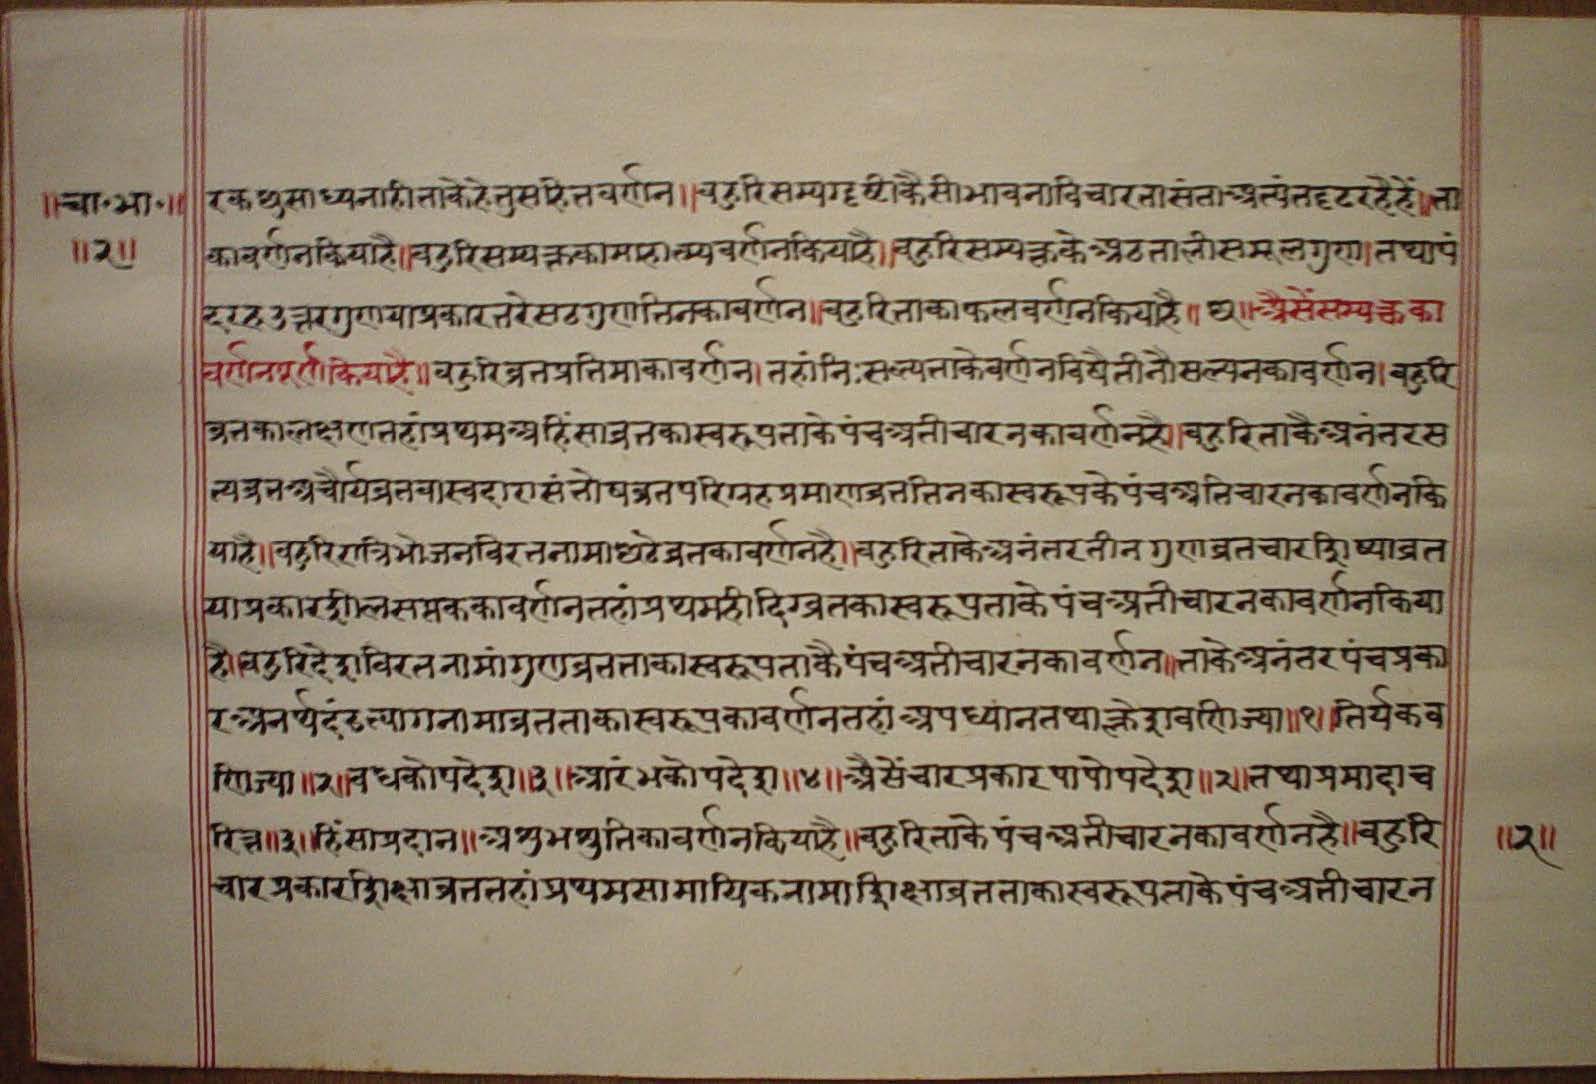 ॥चा॰भा॰॥
॥२॥
रकछुसाध्यनाहीताकेहेतुसहितवर्णन॥बहुरिसम्यग्दृष्टीकैसीभावनाविचारतासंताअत्यंतदृढरहैहैं॥ता
कावर्णनकियाहै॥बहुरिसम्यक्तकामाहात्म्यवर्णनकियाहै॥बहुरिसम्यक्तकेअठतालीसमूलगुण।तथापं
दरहउत्तरगुणयाप्रकारतरेसठगुणतिनकावर्णन॥बहुरिताकाफलवर्णनकियाहै॥ ॥अैसेंसम्यक्तका
वर्णनपूर्णकियाहै॥बहुरिव्रतप्रतिमाकावर्णन।तहांनिःसल्यताकेवर्णनविषैतीनौसल्यनकावर्णन।बहुरि
व्रतकालक्षणतहांप्रथमअहिंसाव्रतकास्वरूपताकेपंचअतीचारनकावर्णनहै॥बहुरिताकैअनंतरस
त्यव्रतअचौर्यव्रतवास्वदारासंतोषव्रतपरिग्रहप्रमाणव्रततिनकास्वरूपकेपंचअतिचारनकावर्णनकि
याहै॥बहुरिरात्रिभोजनविरतनामाछठेव्रतकावर्णनहै॥बहुरिताकेअनंतरतीनगुणव्रतचारशिष्याव्रत
याप्रकारशीलसप्तककावर्णनतहांप्रथमहीदिग्व्रतकास्वरूपताकेपंचअतीचारनकावर्णनकिया
है॥बहुरिदेशविरतनामांगुणव्रतताकास्वरूपताकैपंचअतीचारनकावर्णन॥ताकेअनंतरपंचप्रका
रअनर्थदंडत्यागनामाव्रतताकास्वरूपकावर्णनतहांअपध्यांनतथाक्लेशवणिज्या॥१॥तिर्यकव
णिज्या॥२॥वधकोपदेश॥३॥आरंभकोपदेश॥४॥अैसेंचारप्रकारपापोपदेश॥२॥तथाप्रमादाच
रित्त॥३॥हिंसाप्रदान॥अशुभश्रुतिकावर्णनकियाहै॥बहुरिताकेपंचअतीचारनकावर्णनहै॥बहुरि
चारप्रकारशिक्षाव्रततहांप्रथमसामायिकनामाशिक्षाव्रतताकास्वरूपताकेपंचअतीचारन
॥२॥